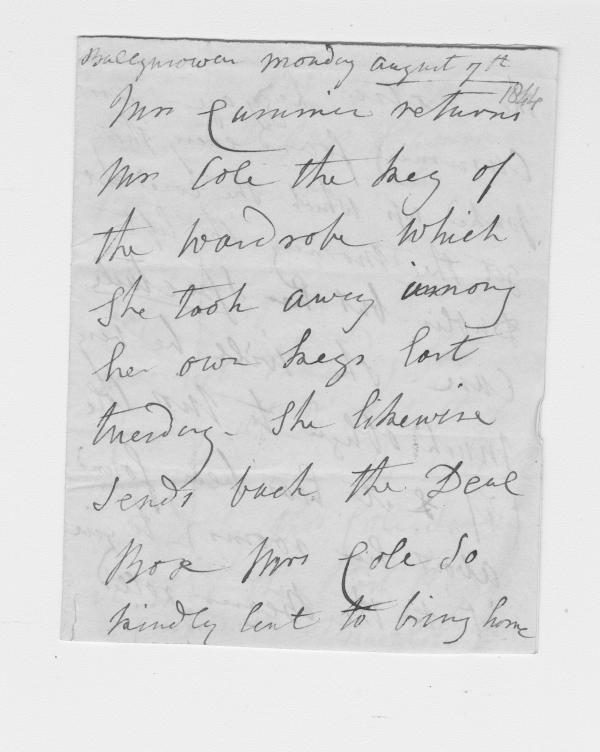 Ballymower monday august 7th
1844
Mrs Cummins returns
Mrs Cole the key of
the wardrobe which
She took away among
her own keys last
tuesday - She likewise
Sends back the Deal
Box Mrs Cole So
kindly lent to bring home